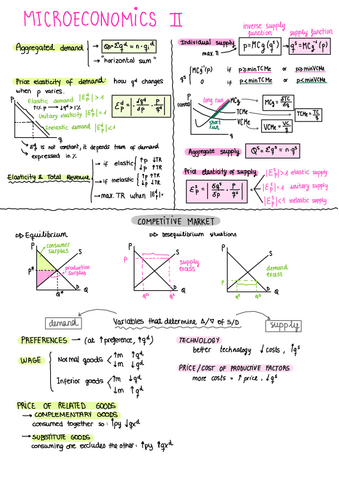 MICROECONOMICS II
Aggregated demand → Qᴰ=Σqᵈ = n·qᵢᵈ
→ "horizontal sum"
Price elasticity of demand: how qᵈ changes
when p varies.
Elastic demand |Eᵈp|>1
Unitary elasticity |Eᵈp|=1
Inelastic demand |Eᵈp|<1
is not constant, it depends from of demand
expressed in %
Elasticity & Total Revenue
→ if elastic ↑p ↓TR
↓p ↑TR
→ if inelastic ↑p ↑TR
↓p ↓TR
→ max. TR when
inverse supply function
supply function
Individual supply
max. π
p=MCg (qˢ)
qˢ=MCg⁻¹(p)
qˢ
MCg⁻¹(p) if p≥minTCMe or p≥minVCMe
0 if p<minTCMe or p<minVCMe
P
long run
MCg
TCMe
VCMe
short run
MCg = dTC/dq
TCMe = TC/q
VCMe = VC/q
Aggregate supply Qˢ=Σqˢ = n·qˢ
Price elasticity of supply
|Eˢp|>1 elastic supply
|Eˢp|=1 unitary supply
|Eˢp|<1 inelastic supply
COMPETITIVE MARKET
Equilibrium
Desequilibrium situations
consumer surplus
production surplus
P
S
D
Q
supply excess
P
S
D
Q
demand excess
P
S
D
Q
demand
Variables that determine Δ/∇ of S/D
supply
PREFERENCES → (at ↑preference, ↑qᵈ)
WAGE
Normal goods ↑m ↑qᵈ
↓m ↓qᵈ
Inferior goods ↑m ↓qᵈ
↓m ↑qᵈ
PRICE OF RELATED GOODS
→ COMPLEMENTARY GOODS
consumed together so: ↑py ↓gxᵈ
→ SUBSTITUTE GOODS
consuming one excludes the other: ↑py ↑gxᵈ
TECHNOLOGY
better technology ↓costs, ↑qˢ
PRICE/COST OF PRODUCTIVE FACTORS
more costs = ↑price, ↓qᵈ